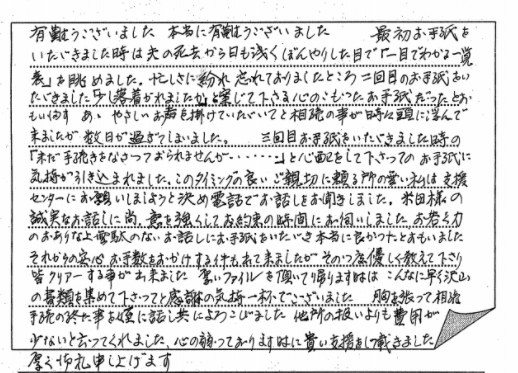 有難うございました 本当に有難うございました 最初お手紙を
いただきました時は夫の死去から日も浅くぼんやりした目で「一目でわかる一覧
表」を眺めました。忙しさに紛れ忘れておりましたところ二回目のお手紙をい
ただきました「少し落着かれましたか」と案じて下さる心のこもったお手紙だったとおも
います あゝやさしいお声を掛けていただいてと相続の事が時々頭に浮んで
来ましたが数日が過ぎてしまいました。 三回目お手紙をいただきました時の
「未だ手続きをなさっておられませんが・・・・・・」と心配をして下さってのお手紙に
気持が引き込まれました。このタイミングの良いご親切に頼る所の無い私は支援
センターにお願いしようと決め電話でお話しをお聞きしました。 本田様の
誠実なお話しに尚、意を強くしてお約束の時間にお伺いしました お若く力
のおありな上無駄のないお話しにお手紙をいただき本当に良かったとおもいました
それからの安心 お手数をおかけする件も出て来ましたがその つど優しく教えて下さり
皆クリアーする事が出来ました 重いファイルを頂いて帰ります時は こんなに早く沢山
の書類を集めて下さってと感謝の気持一杯でございました 胸を張って相続
手続の終えた事を娘に話し共によろこびました 他所の扱いよりも費用が
少ないと云ってくれました。心の弱っております時に貴い支援をして戴きました
厚く御礼申し上げます